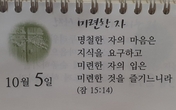 미련한 자
명철한 자의 마음은
지식을 요구하고
미련한 자의 입은
미련한 것을 즐기느니라
(잠 15:14)
10월 5일